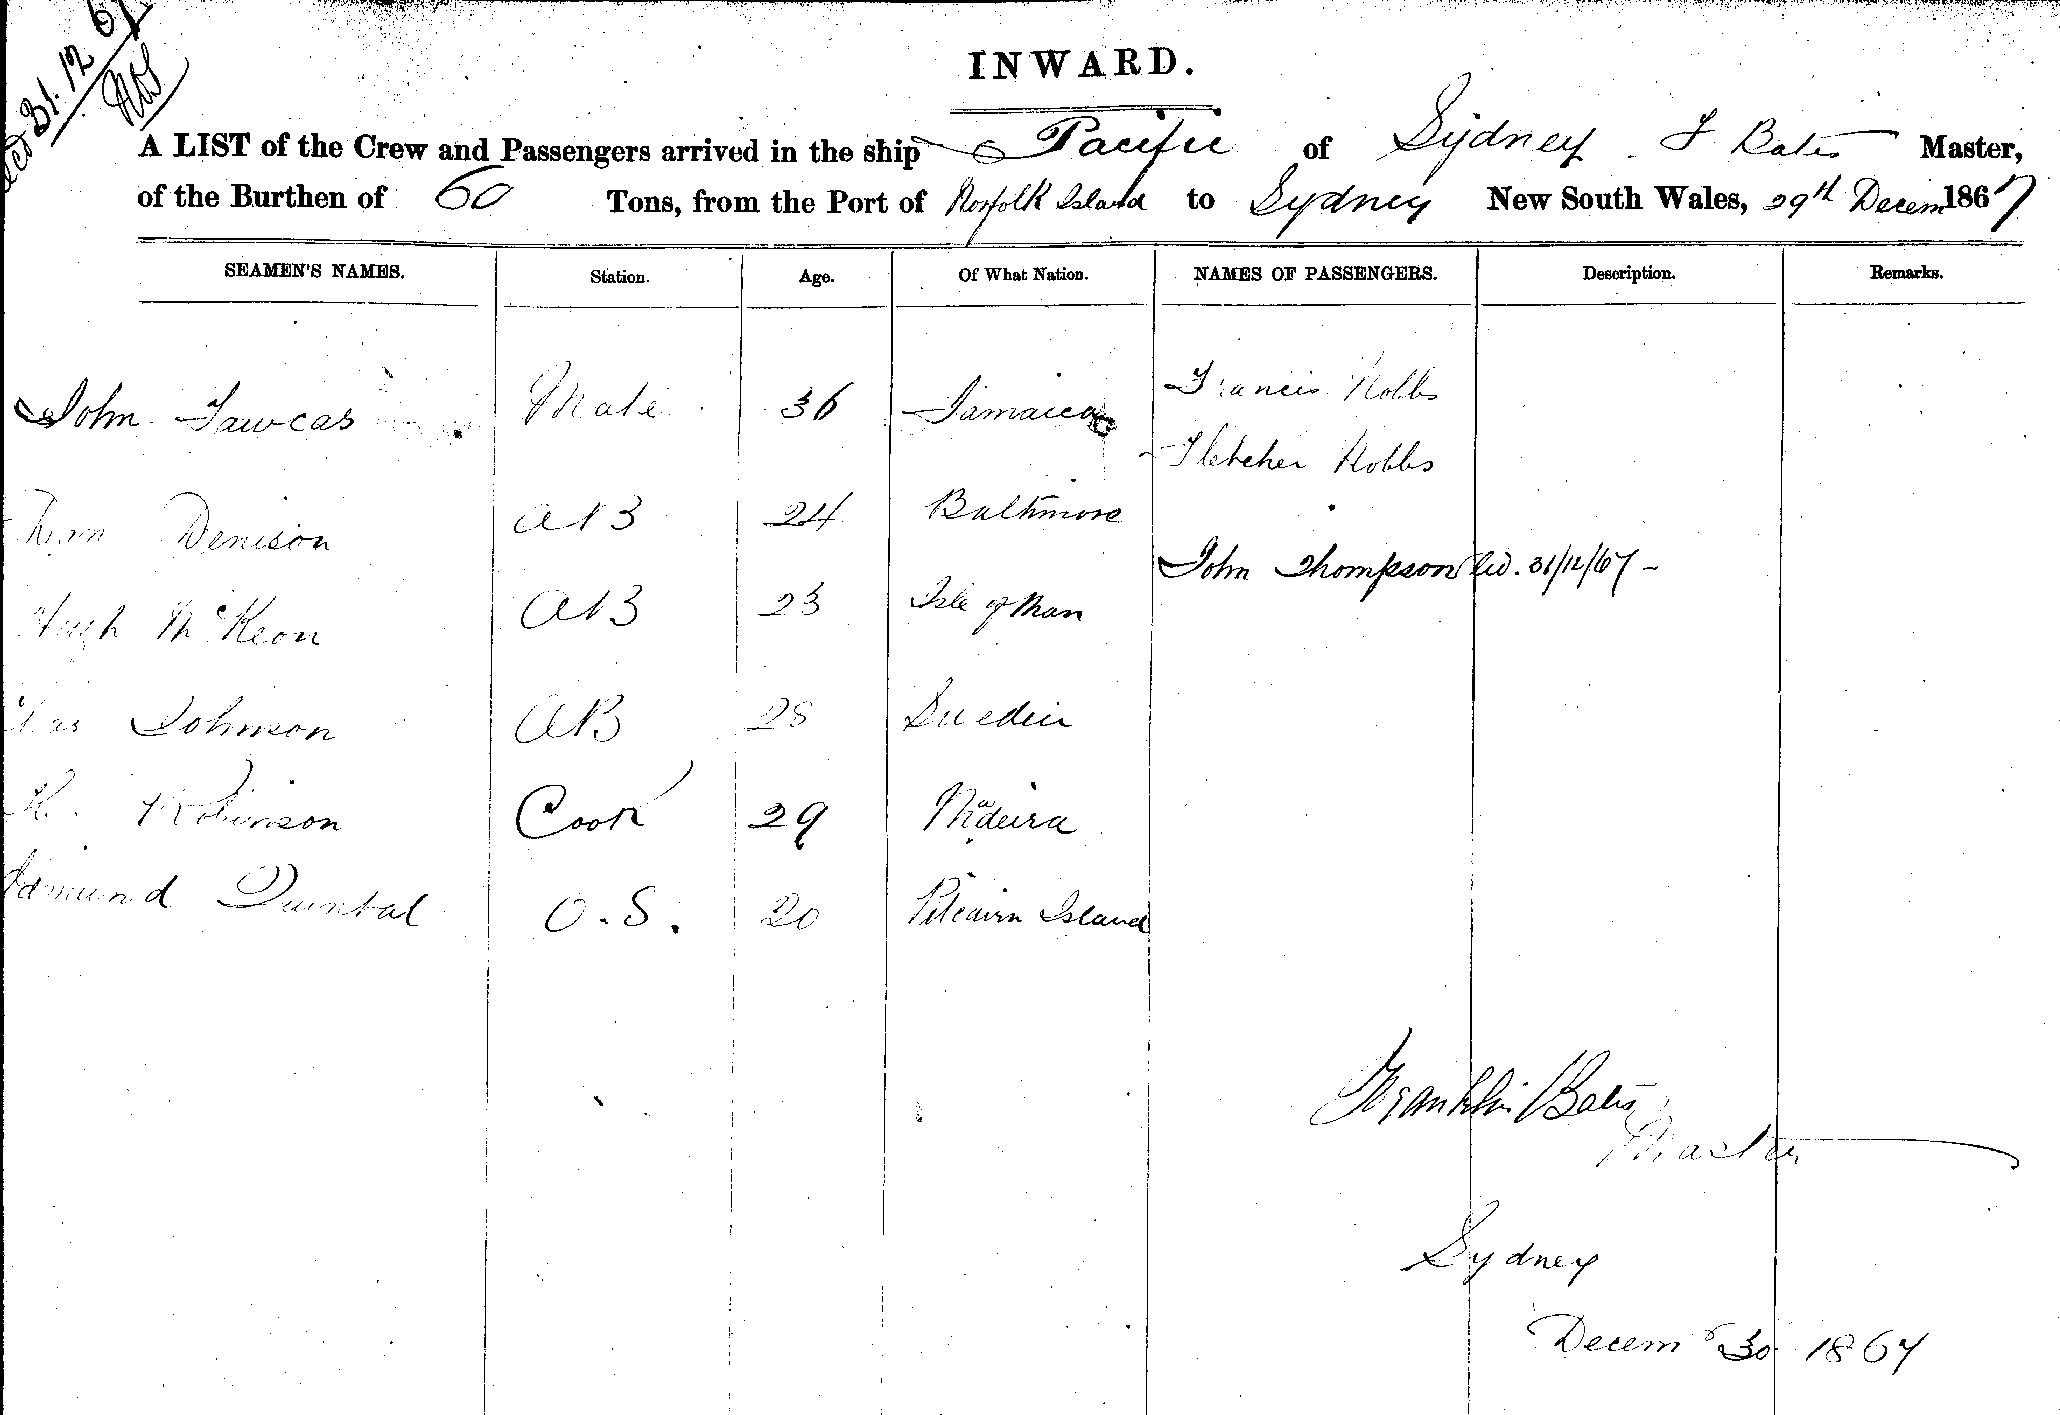 31.12.67
INWARD.
A LIST of the Crew and Passengers arrived in the ship Pacific of Sydney F Bates Master,
of the Burthen of 60 Tons, from the Port of Norfolk Island to Sydney New South Wales, 29th Decem 1867
SEAMEN'S NAMES. Station. Age. Of What Nation. NAMES OF PASSENGERS. Description. Remarks.
Francis Nobbs
John Fawcas Mate 36 Jamaica
Fletcher Nobbs
Denison AB 24 Baltimore
John Thompson 31/12/67 -
Hugh McKeon AB 23 Isle of Man
Johnson AB 28 Sueden
Robinson Cook 29 Madeira
Edmund Quintal O.S. 20 Pitcairn Island
Franklin Bates
Master
Sydney
Decem 30 1867